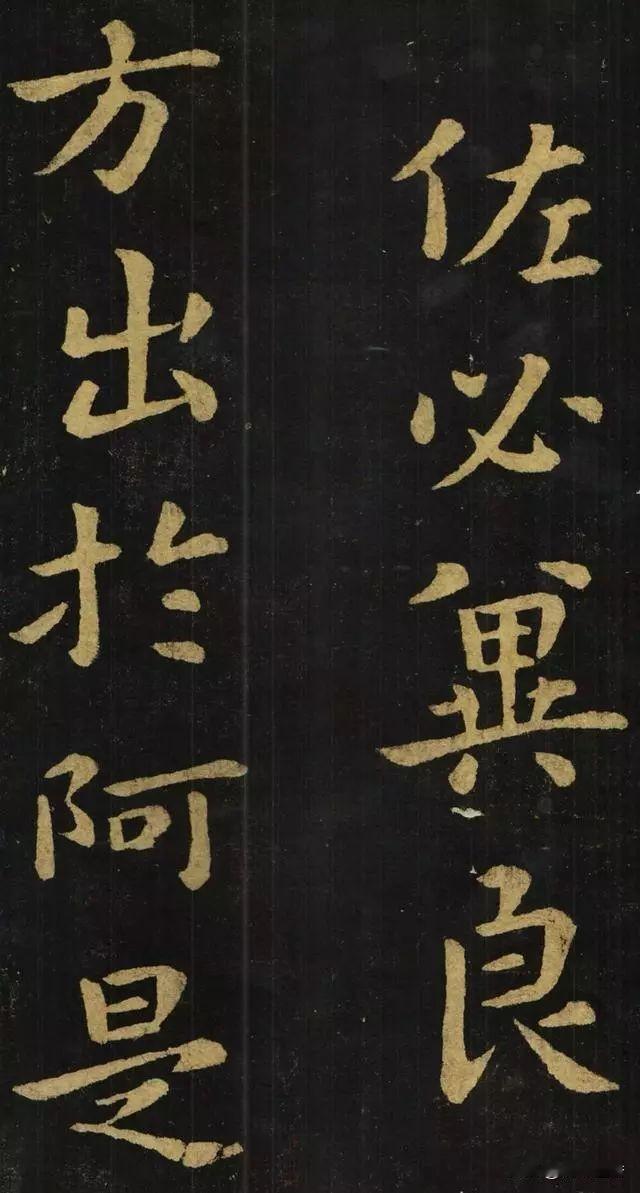 佐必冀良
方出於阿是